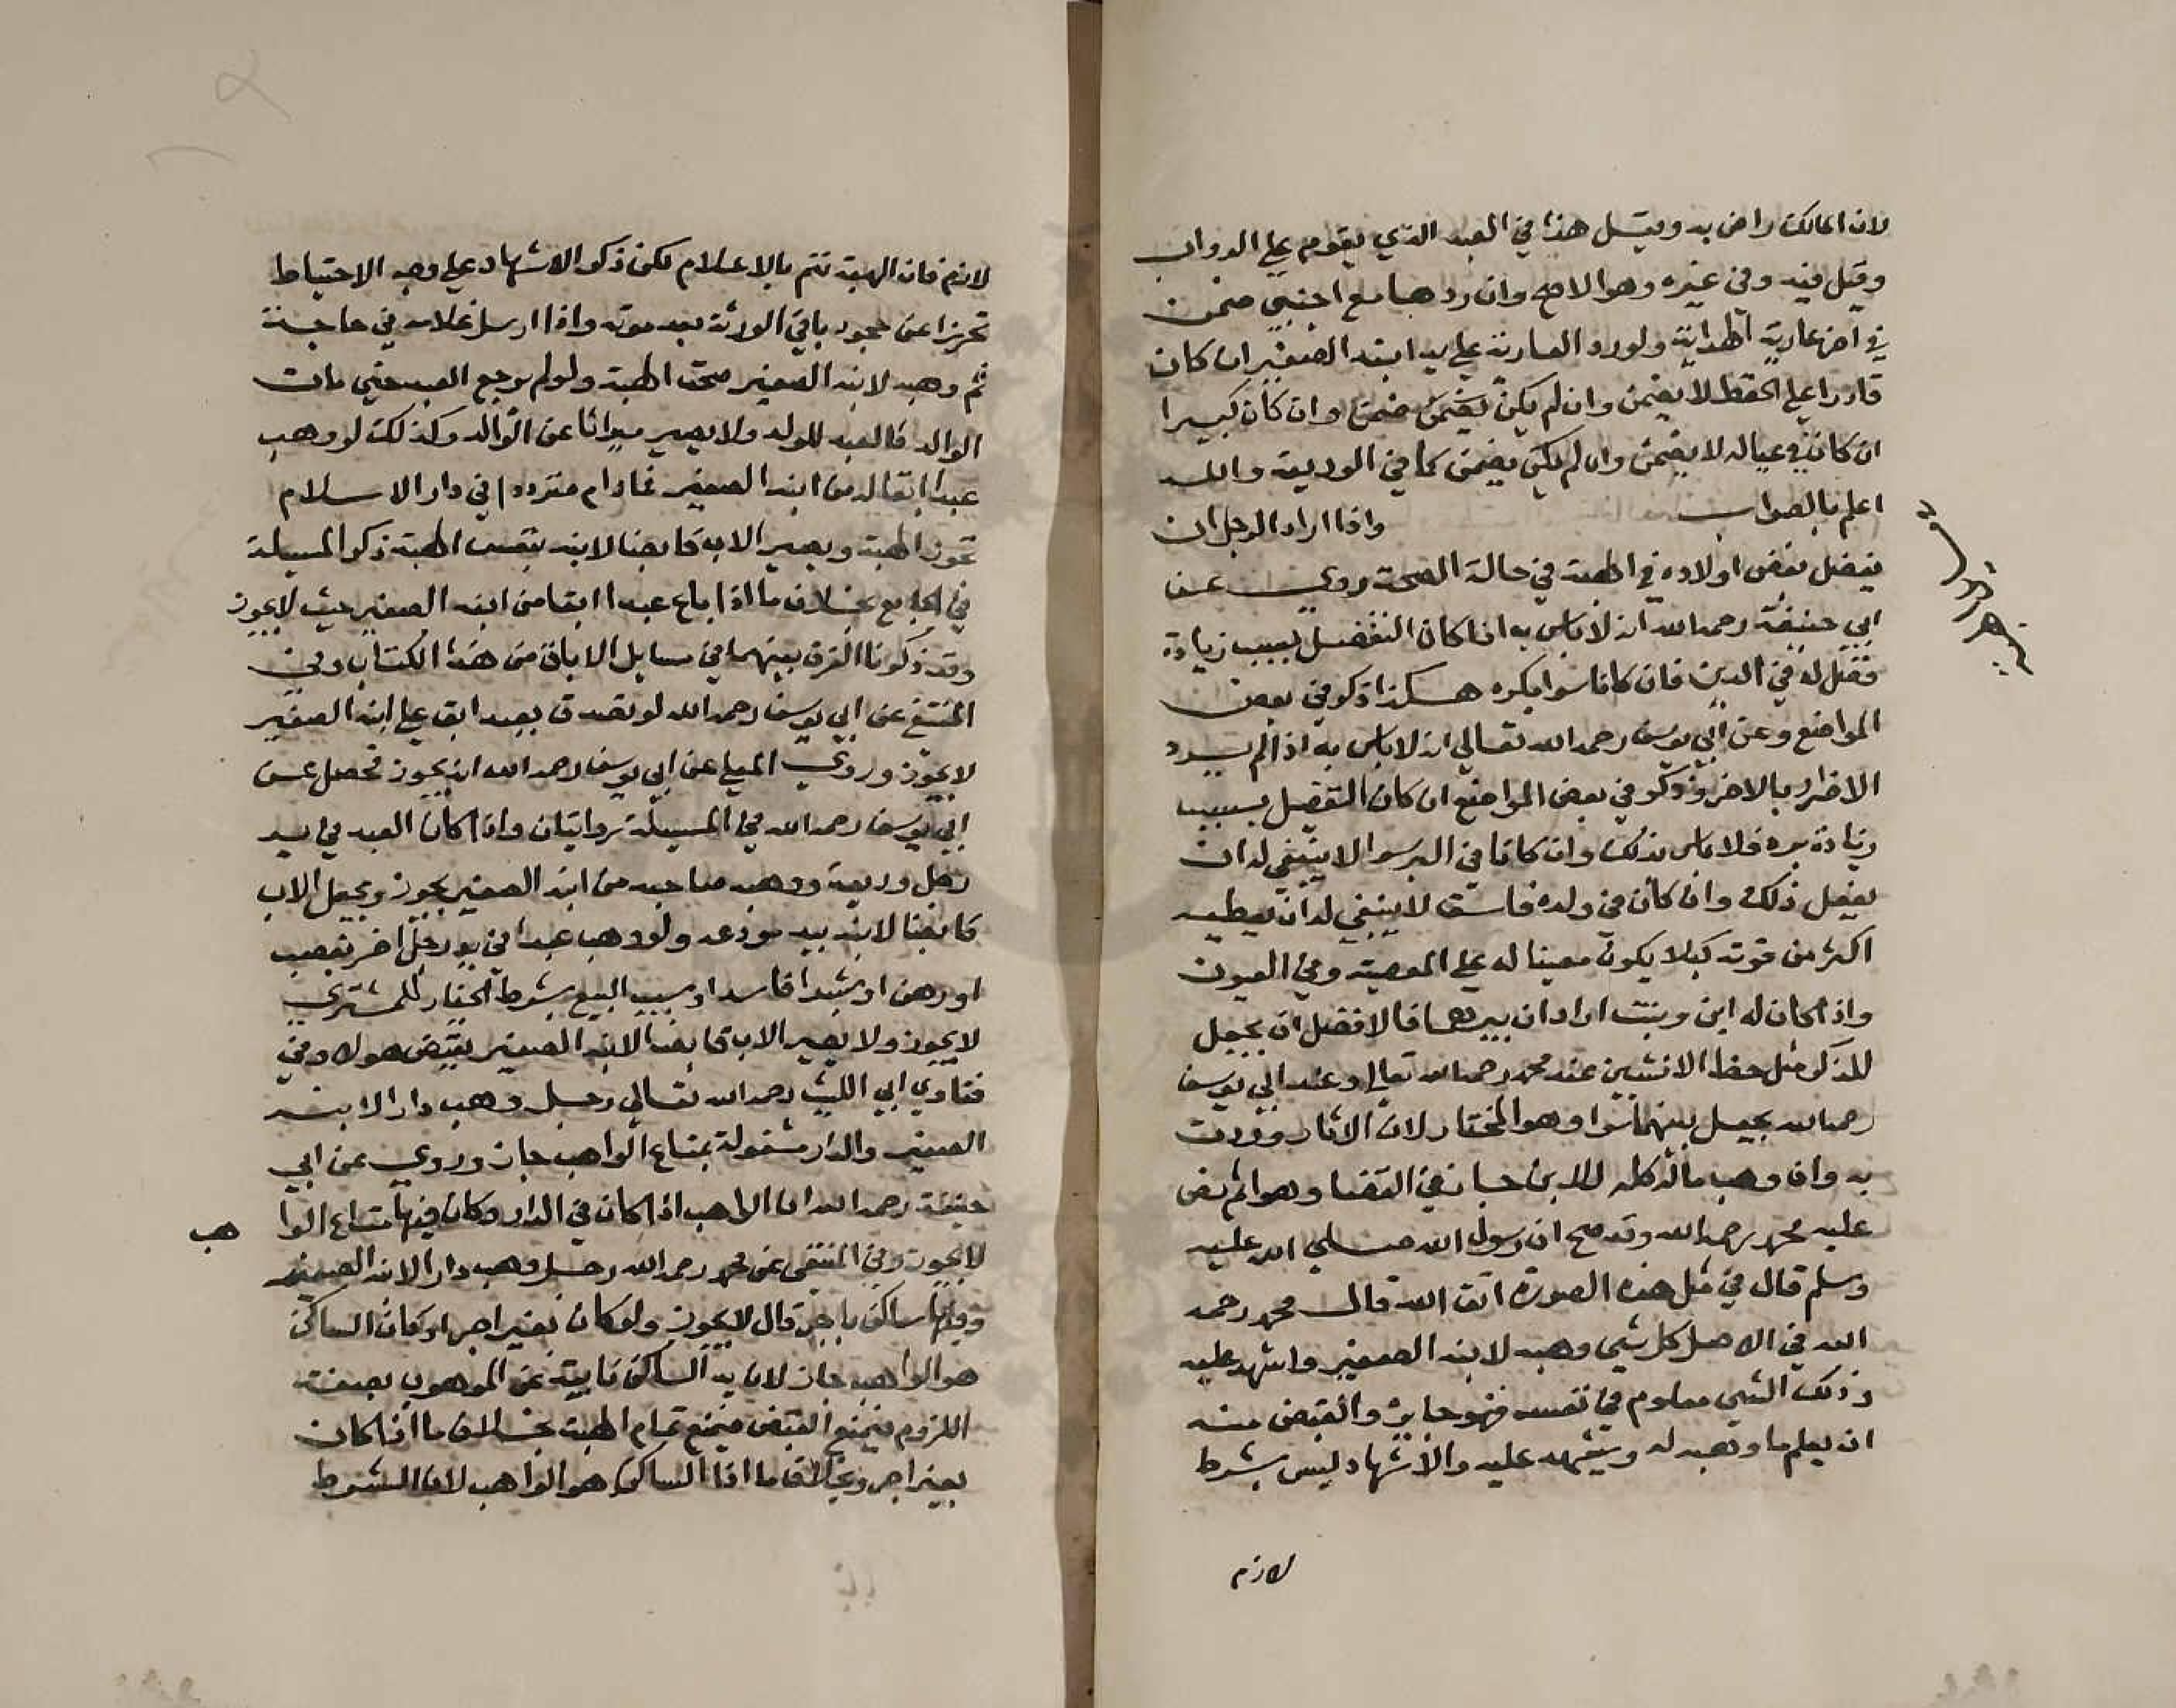 لان المالك راض به وقيل هذا في العبد الذي يقوم علي الدواب
وقيل فيه وفي غيره وهو الاصح وان ردها مع اجنبي ضمن
في اخر عارية الهداية ولورد العارية علي يد ابنه الصغير ان كان
قادرا علي الحفظ لا يضمن وان لم يكن يضمن ضمن وان كان كبيرا
ان كان في عياله لا يضمن وان لم يكن يضمن كما في الوديعة والله
اعلم بالصواب واذا اراد الرجل ان
يفضل بعض اولاده في الهبة في حالة الصحة روي عن
ابي حنيفة رحمه الله انه لا باس به اذا كان التفضيل بسبب زيادة
فضل له في الدين فان كانا سوا يكره هكذا ذكر في بعض
المواضع وعن ابي يوسف رحمه الله تعالي انه لا باس به اذا لم يرد
الاضرار بالاخر وذكر في بعض المواضع ان كان التفضيل بسبب
زيادة بره فلا باس بذلك وان كانا في البر سوا لا ينبغي له ان
يفعل ذلك وان كان في ولده فاسق لا ينبغي له ان يعطيه
اكثر من قوته كيلا يكون معينا له علي المعصية وفي العيون
واذا كان له ابن وبنت اراد ان يبرهما فالافضل ان يجعل
للذكر مثل حظ الانثيين عند محمد رحمه الله تعالي وعند ابي يوسف
رحمه الله يجعل بينهما سوا وهو المختار لان الاثار وردت
به وان وهب ماله كله للابن جاز في القضا وهو اثم نص
عليه محمد رحمه الله وقد صح ان رسول الله صلي الله عليه
وسلم قال في مثل هذه الصورة اتق الله قال محمد رحمه
الله في الاصل كل شي وهبه لابنه الصغير واشهد عليه
وذلك الشي معلوم في نفسه فهو جايز والقبض منه
ان يعلم ما وهبه له ويشهد عليه والاشهاد ليس بشرط
لازم
لازم فان الهبة تتم بالاعلام لكن ذكر الاشهاد علي وجه الاحتياط
تحرزا عن جحود باقي الورثة بعد موته واذا ارسل غلامه في حاجة
ثم وهبه لابنه الصغير صحت الهبة ولو لم يرجع العبد حتي مات
الوالد فالعبد للولد ولا يصير ميراثا عن الوالد وكذلك لو وهب
عبدا ابقا له من ابنه الصغير فما دام مترددا في دار الاسلام
تجوز الهبة ويصير الاب قابضا لابنه بنفس الهبة ذكر المسيلة
في الجامع بخلاف ما اذا باع عبدا ابقا من ابنه الصغير حيث لا يجوز
وقد ذكرنا الفرق بينهما في مسايل الاباق من هذا الكتاب وفي
المنتقي عن ابي يوسف رحمه الله لو تصدق بعبد ابق علي ابنه الصغير
لا يجوز وروي المعلي عن ابي يوسف رحمه الله انه يجوز فحصل عن
ابي يوسف رحمه الله في المسيلة روايتان واذا كان العبد في يد
رجل وديعة ووهبه صاحبه من ابنه الصغير يجوز ويجعل الاب
قابضا لابنه بيد مودعه ولو وهب عبدا في يد رجل اخر بغصب
او رهن او بشرا فاسد او بسبب البيع بشرط الخيار للمشتري
لا يجوز ولا يصير الاب قابضا لابنه الصغير بقبض هولا وفي
فتاوي ابي الليث رحمه الله تعالي رجل وهب دارا لابنه
الصغير والدار مشغولة بمتاع الواهب جاز وروي عن ابي
حنيفة رحمه الله ان الواهب اذا كان في الدار وكان فيها متاع الوا هب
لا يجوز وفي المنتقي عن محمد رحمه الله رجل وهب دارا لابنه الصغير
وفيها ساكن باجر قال لا يجوز ولو كان بغير اجر او كان الساكن
هو الواهب جاز لان يد الساكن ثابتة عن الموهوب بصفة
اللزوم فيمنع القبض فيمنع تمام الهبة بخلاف ما اذا كان
بغير اجر وبخلاف ما اذا الساكن هو الواهب لان الشرط